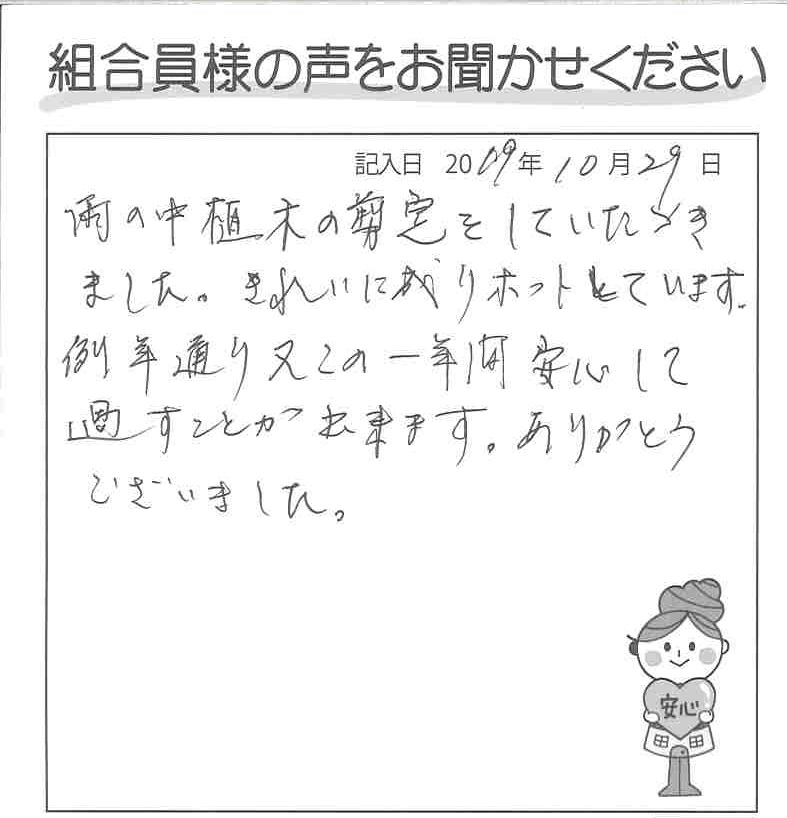 組合員様の声をお聞かせください
記入日 2019年10月29日
雨の中植木の剪定をしていただき
ました。きれいに成りホットしています。
例年通り又この一年間安心して
過すことが出来ます。ありがとう
ございました。
安心